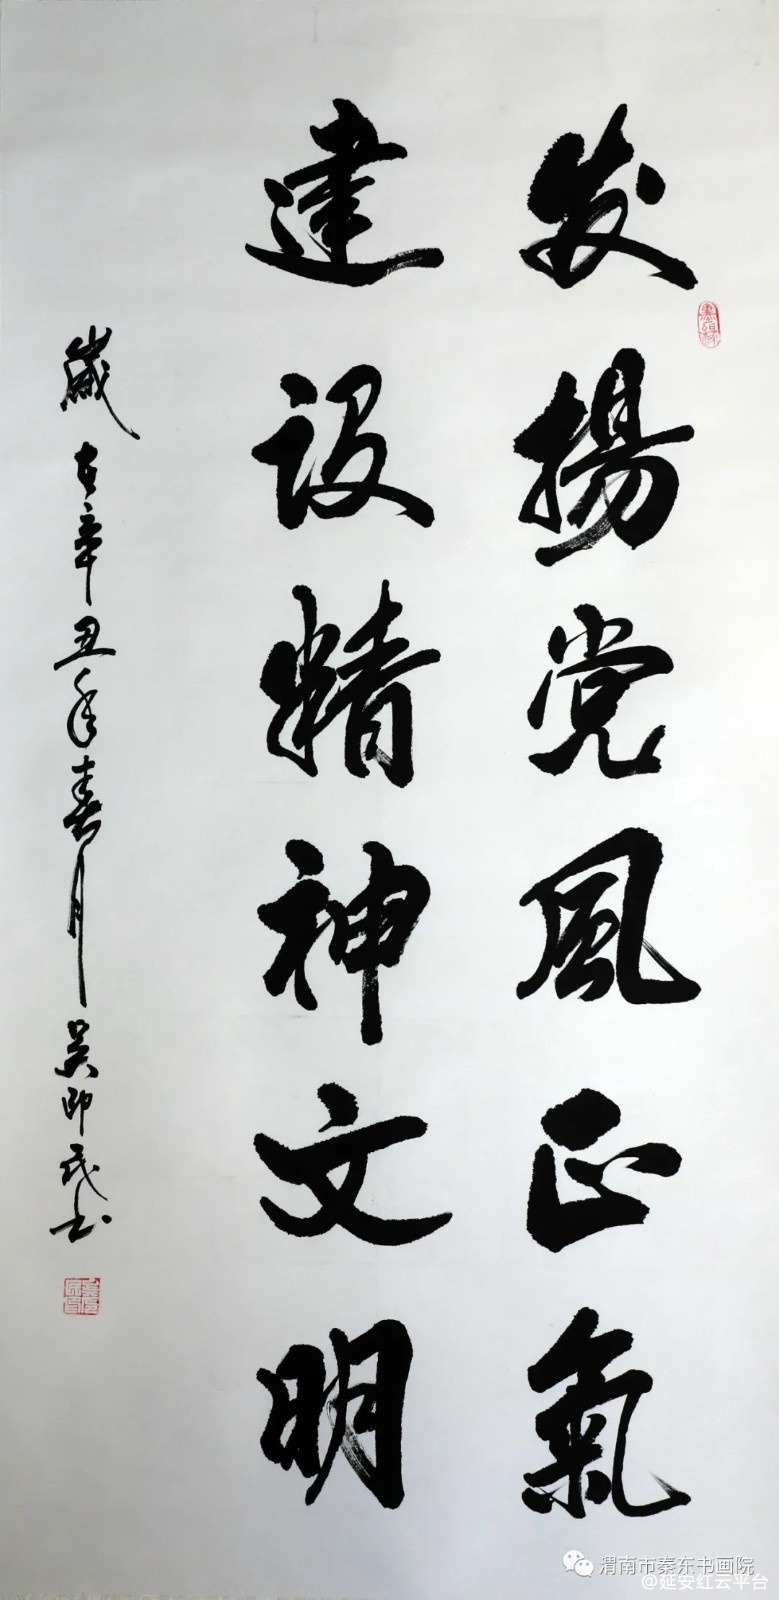 发揚党風正氣
建設精神文明
歲在辛丑年春月吴印民书
渭南市秦东书画院
@延安红云平台